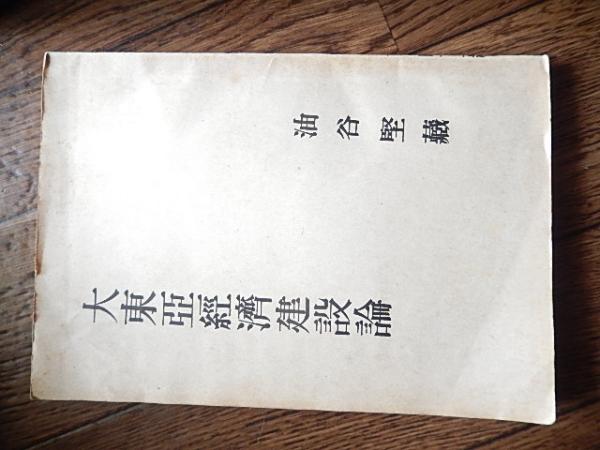 大東亞經濟建設論
油谷堅藏